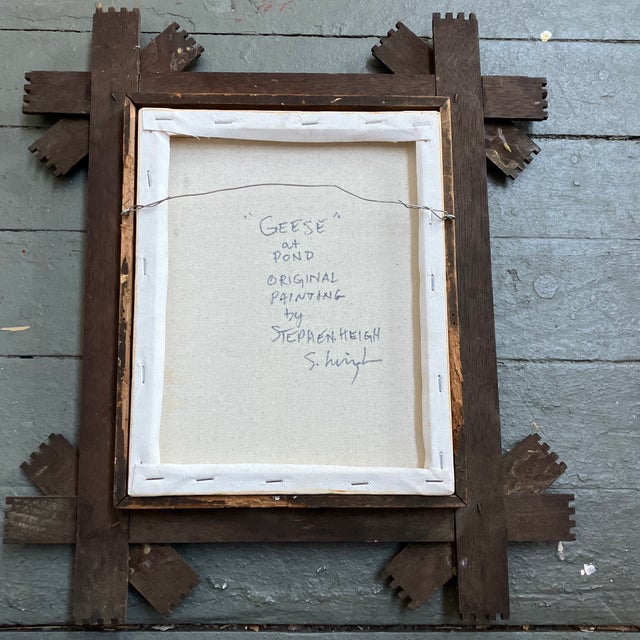 "GEESE"
at
POND
ORIGINAL
PAINTING
by
STEPHEN HEIGH
S. Heigh